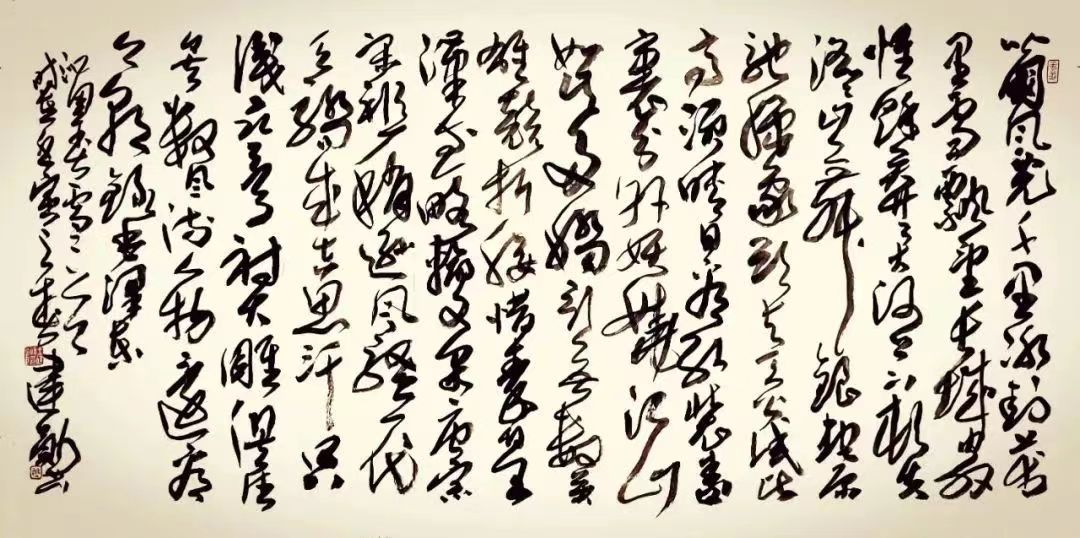 北國風光千里冰封萬
里雪飄望長城內外
惟餘莽莽大河上下頓失
滔滔山舞銀蛇原
馳蠟象欲與天公試比
高須晴日看紅裝素
裹分外妖嬈江山
如此多嬌引無數英
雄競折腰惜秦皇
漢武略輸文采唐宗
宋祖稍遜風騷一代
天驕成吉思汗只
識彎弓射大雕俱往
矣數風流人物還看
今朝錄毛澤東
沁園春大雪